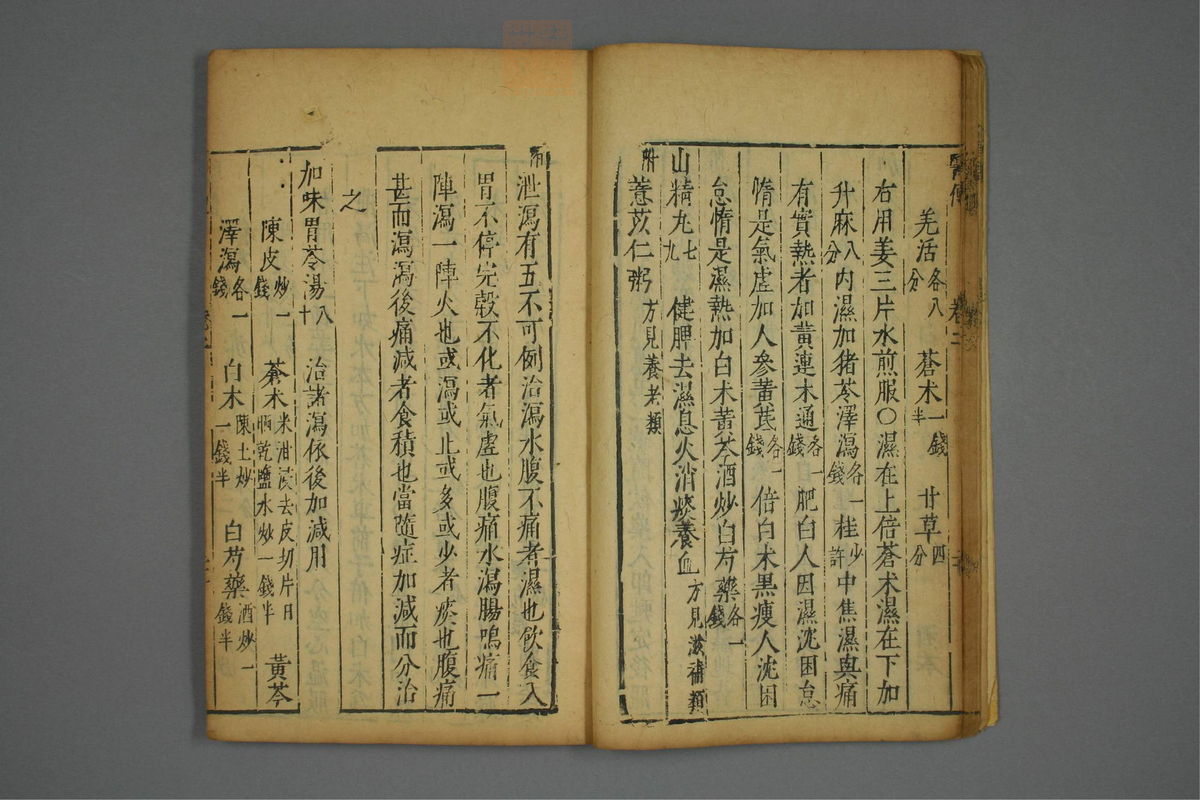 羌活各八分 蒼术一錢半 甘草四分
右用姜三片水煎服○濕在上倍蒼术濕在下加
升麻八分内濕加猪苓澤瀉各一錢桂少許中焦濕與痛
有實熱者加黄連木通各一錢肥白人因濕沈困怠
惰是氣虚加人參黄芪各一錢倍白术黒瘦人沈困
怠惰是濕熱加白术黄芩酒炒白芍藥各一錢
山精丸七九 健脾去濕息火消痰養血方見滋補類
附薏苡仁粥方見養老類
附泄瀉有五不可例治瀉水腹不痛者濕也飲食入
胃不停完穀不化者氣虚也腹痛水瀉腸鳴痛一
陣瀉一陣火也或瀉或止或多或少者痰也腹痛
甚而瀉瀉後痛減者食積也當隨症加減而分治
之
加味胃苓湯八十 治諸瀉依後加減用
陳皮炒一錢 蒼术米泔浸去皮切片日晒乾鹽水炒一錢半 黄芩
澤瀉各一錢 白术陳土炒一錢半 白芍藥酒炒一錢半
卷二